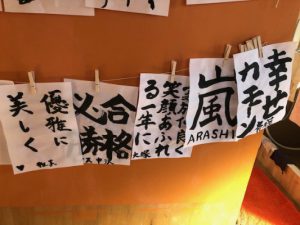 優雅に
美しく
合格
必勝
良く
笑顔あふれ
る一年に
大塚
嵐
ARASHI
幸せ